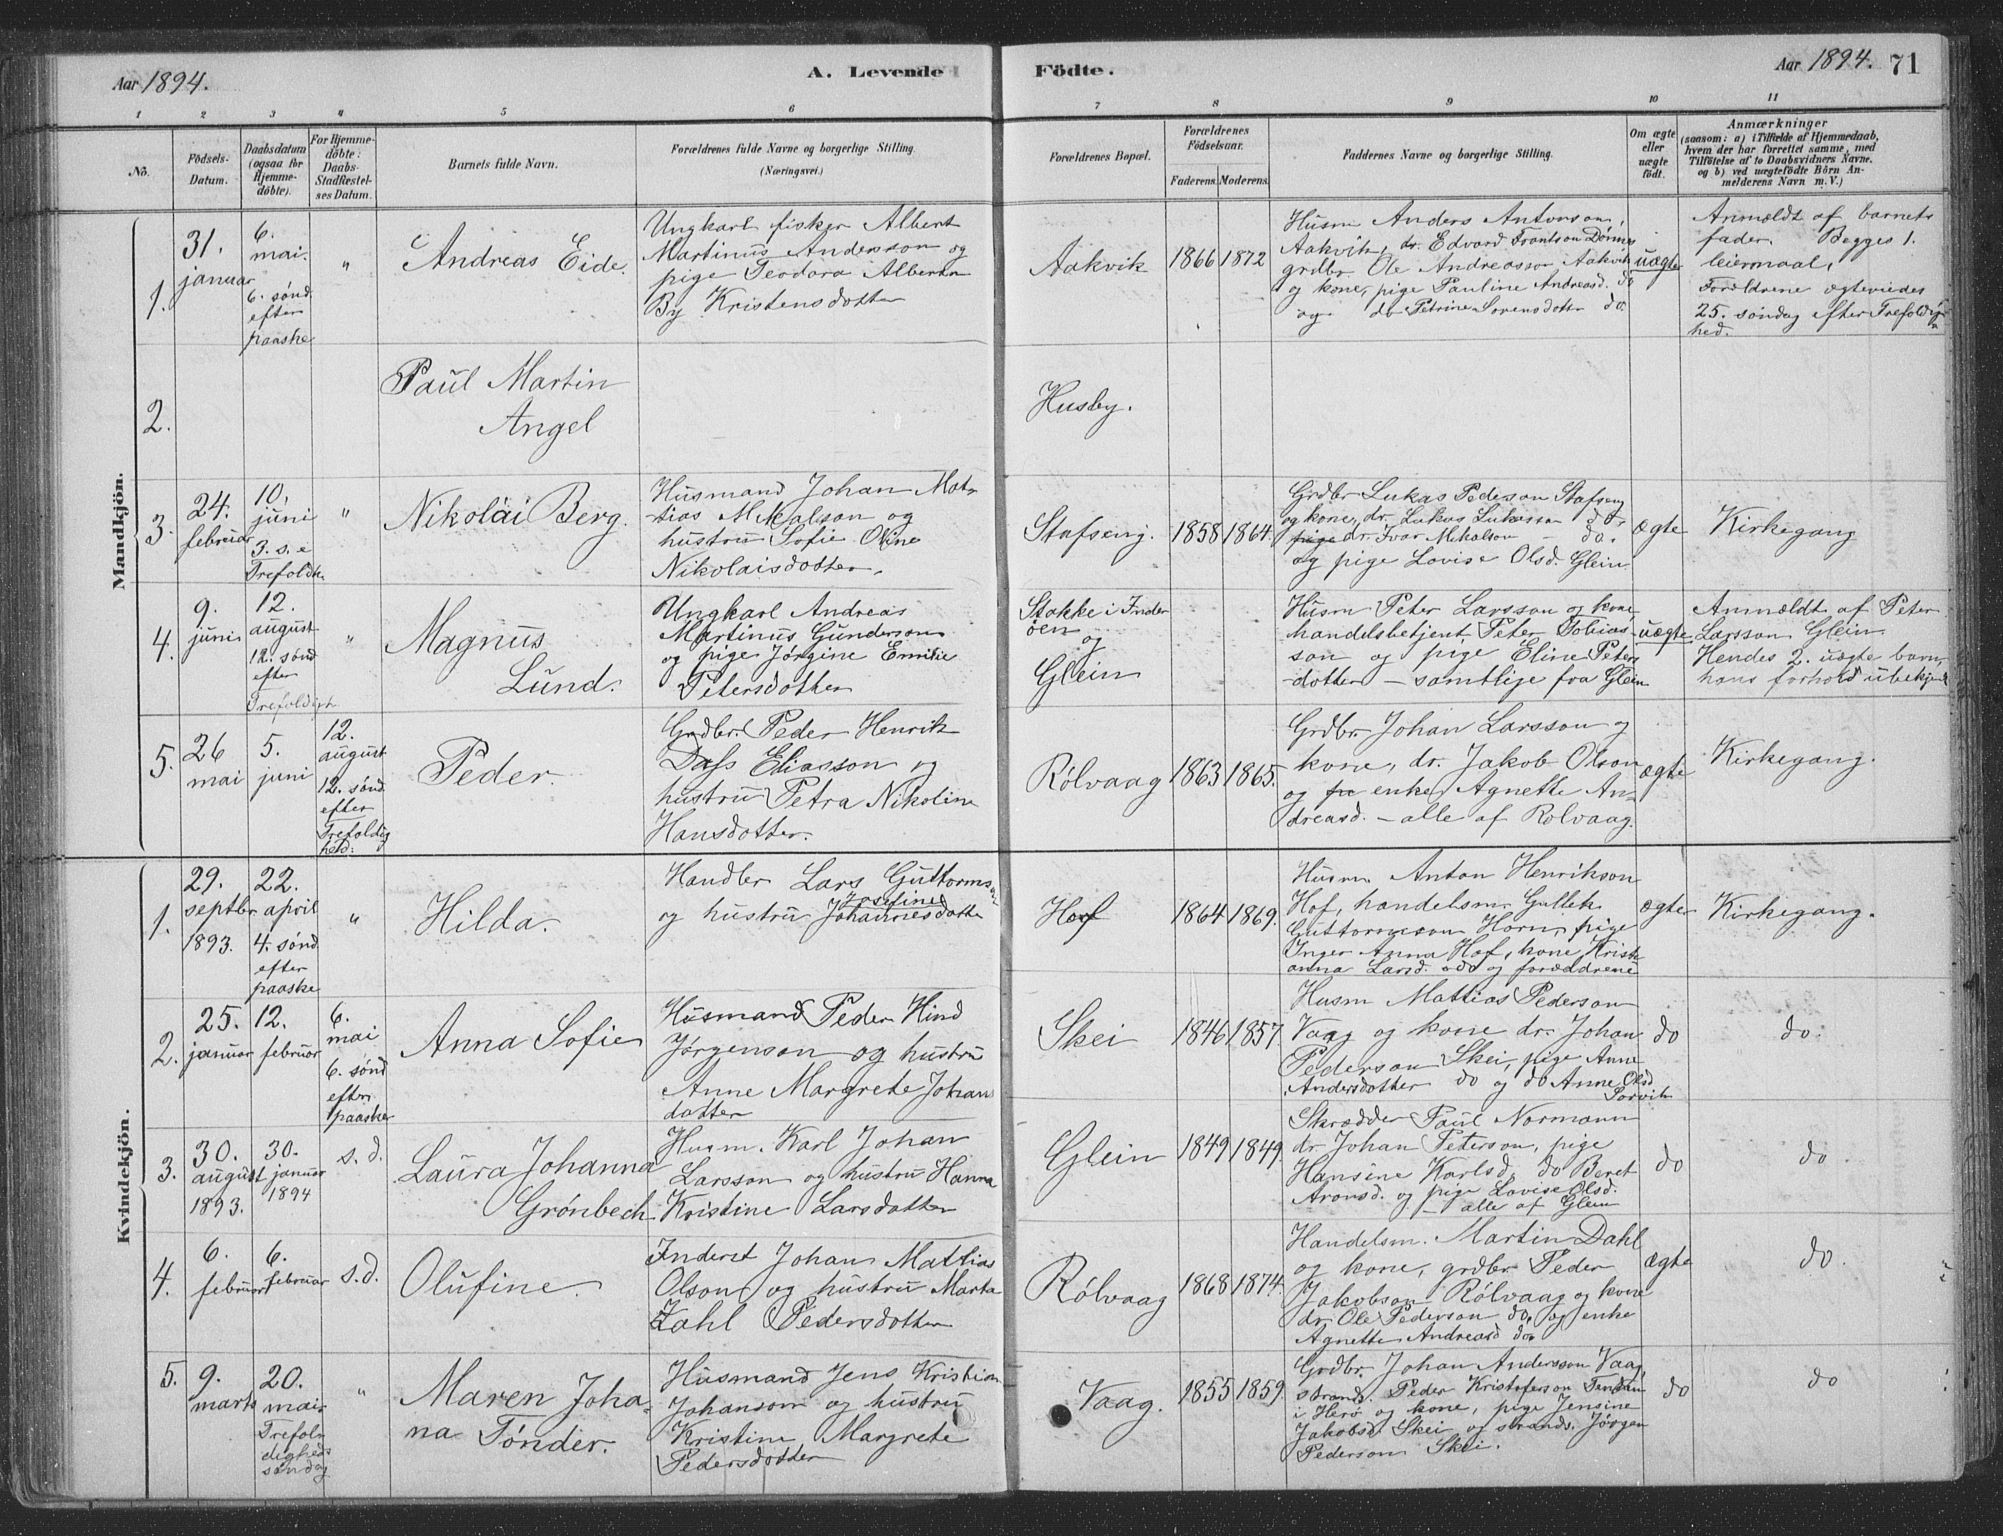 Aar 1894.
A. Levende
Födte.
Aar 1894. 71
1 2 3 4 5 6 7 8 9 10 11
No.
Födsels-
Datum.
Daabsdatum
(ogsaa for
Hjemme-
döbte).
For Hjemme-
döbte:
Daabs-
Stadfæstel-
ses Datum.
Barnets fulde Navn.
Forældrenes fulde Navne og borgerlige Stilling.
(Næringsvei.)
Forældrenes Bopæl.
Forældrenes
Födselsaar.
Faderens. Moderens.
Faddernes Navne og borgerlige Stilling.
Om ægte
eller
uægte
födt.
Anmærkninger
(saasom: a) i Tilfælde af Hjemmedaab,
hvem der har forrettet samme, med
Tilföielse af to Daabsvidners Navne.
og b) ved uægtefödte Börn An-
melderens Navn m. V.)
Mandkjön.
1.
31.
januar
6.
mai.
6. sønd.
efter
paaske
"
Andreas Eide.
Ungkarl fisker Albert
Martinus Andersson og
pige Teodora Alberta
By Kristensdotter
Aakvik
1866 1872
Husm Anders Antonson,
Aakvik, dr. Edvard Frantson Dønnes
grdbr. Ole Andreasson Aakvik
og kone, pige Pauline Andreasd. do
og do Petrine Sorensdotter do.
uægte
Anmeldt af barnets
fader. Begges 1.
leiermaal,
Forældrene ægteviedes
25. søndag efter Trefoldig-
hed.
2.
Paul Martin
Angel
Husby.
3.
24.
februar
10.
juni
3. s. e
Trefoldh.
"
Nikolai Berg.
Husmand Johan Mat-
tias Mikalson og
hustru Sofie Oline
Nikolaisdotter.
Stafseng.
1858 1864.
Grdbr Lukas Pederson Stafseng
og kone, dr. Lukas Lukasson do,
pige dr. Ivar Mikalson - do.
og pige Lovise Olsd. Glein
ægte
Kirkegang
4.
9.
juni
12.
august
12. sønd
efter
Trefoldigh
"
Magnus
Lund.
Ungkarl Andreas
Martinus Gunderson
og pige Jørgine Emilie
Petersdotter
Stokke i Inder
øen
og
Glein
Husm Peter Larsson og kone,
handelsbetjent Peter Tobias-
son og pige Eline Peters
-dotter - samtlige fra Glein
uægte
Anmældt af Peter
Larsson Glein
Hendes 2. uægte barn,
hans forhold ubekjendt
5.
26
mai
5.
juni
12.
august
12. sønd.
efter
Trefoldig
hed:
Peder.
Grdbr. Peder Henrik
Dass Eliasson og
hustru Petra Nikoline
Hansdotter.
Rølvaag
1863 1865.
Grdbr Johan Larsson og
kone, dr. Jakob Olson
og enke Agnette An-
dreasd. - alle af Rolvaag.
ægte
Kirkegang.
Kvindekjön.
1.
29.
septbr
1893.
22.
april
4. sønd.
efter
paaske
"
Hilda.
Handler Lars Guttorms-
Josefine
og hustru Johannesdotter
Hof
1864 1869.
Husm Anton Henrikson
Hof, handelsm Gullek
Guttormson Horn, pige
Inger Anna Hof, kone Krist-
anna Larsd. do og forældrene
ægte
Kirkegang.
2.
25.
januar
12.
februar
6.
mai
6. sønd
efter
paaske
Anna Sofie
Husmand Peder Hind
Jørgenson og hustru
Anne Margrete Johans
dotter
Skei
1846 1857.
Husm Mattias Pederson
Vaag og kone dr. Johan
Pederson Skei, pige Anne
Andersdotter do og do Anne Olsd.
Sorvik
do
do.
3.
30.
august
1893.
30.
januar
1894
s. d.
Laura Johanna
Grønbech
Husm. Karl Johan
Larsson og hustru Hanna
Kristine Larsdotter
Glein
1849 1849.
Skrædder Paul Normann
dr Johan Peterson, pige
Hansine Karlsd. do Beret
Aronsd. og pige Lovise Olsd.
- alle af Glein
do
do.
4.
6.
februar
6.
februar
s.d.
Olufine.
Inderst Johan Mattias
Olson og hustru Marta
Zahl Pedersdotter
Rølvaag
1868 1874.
Handelsm. Martin Dahl
og kone, grdbr. Peder
Jakobson Rølvaag og kone
dr Ole Pederson do, og enke
Agnette Andreasd do.
ægte
do.
5.
9.
marts
20.
mai
Trefol-
digheds
søndag
"
Maren Joha-
na Tønder.
Husmand Jens Kristian
Johanson og hustru
Kristine Margrete
Pedersdotter
Vaag.
1855 1859.
Grdbr. Johan Andersson Vaag,
strands. Peder Kristoferson
i Herø og kone, pige Jensine
Jakobsd. Skei og strands. Jørgen
Pederson Skei.
do
do